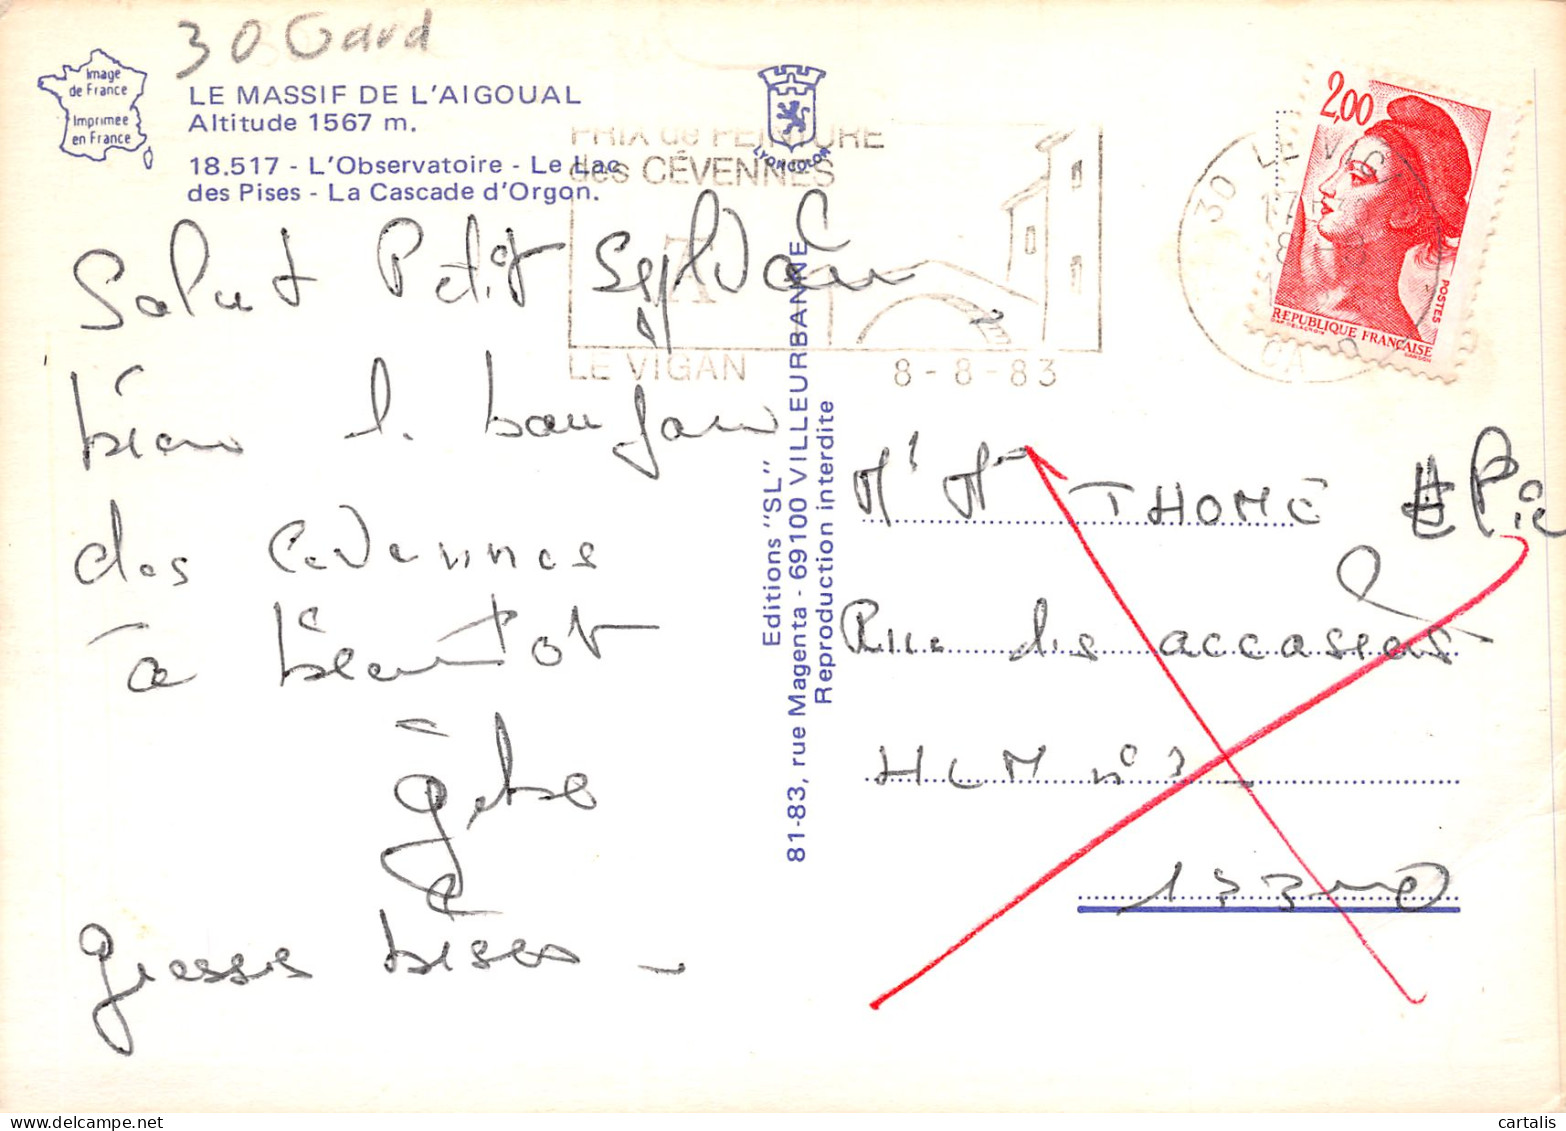 30 Gard
Image
de France
Imprimée
en France
LE MASSIF DE L'AIGOUAL
Altitude 1567 m.
18.517 - L'Observatoire - Le Lac
des Pises - La Cascade d'Orgon.
LYONCOLOR
PRIX de PEINTURE
des CÉVENNES
LE VIGAN
8-8-83
30 LE VIGAN
2,00
POSTES
REPUBLIQUE FRANÇAISE
Salut Petit Sylvain
bien le bonjour
des Cevennes
à bientot
gébé
grosses bises -
Editions "SL"
81-83, rue Magenta - 69100 VILLEURBANNE
Reproduction interdite
Mr Me THOMÉ
Rue des accassias
HLM n°